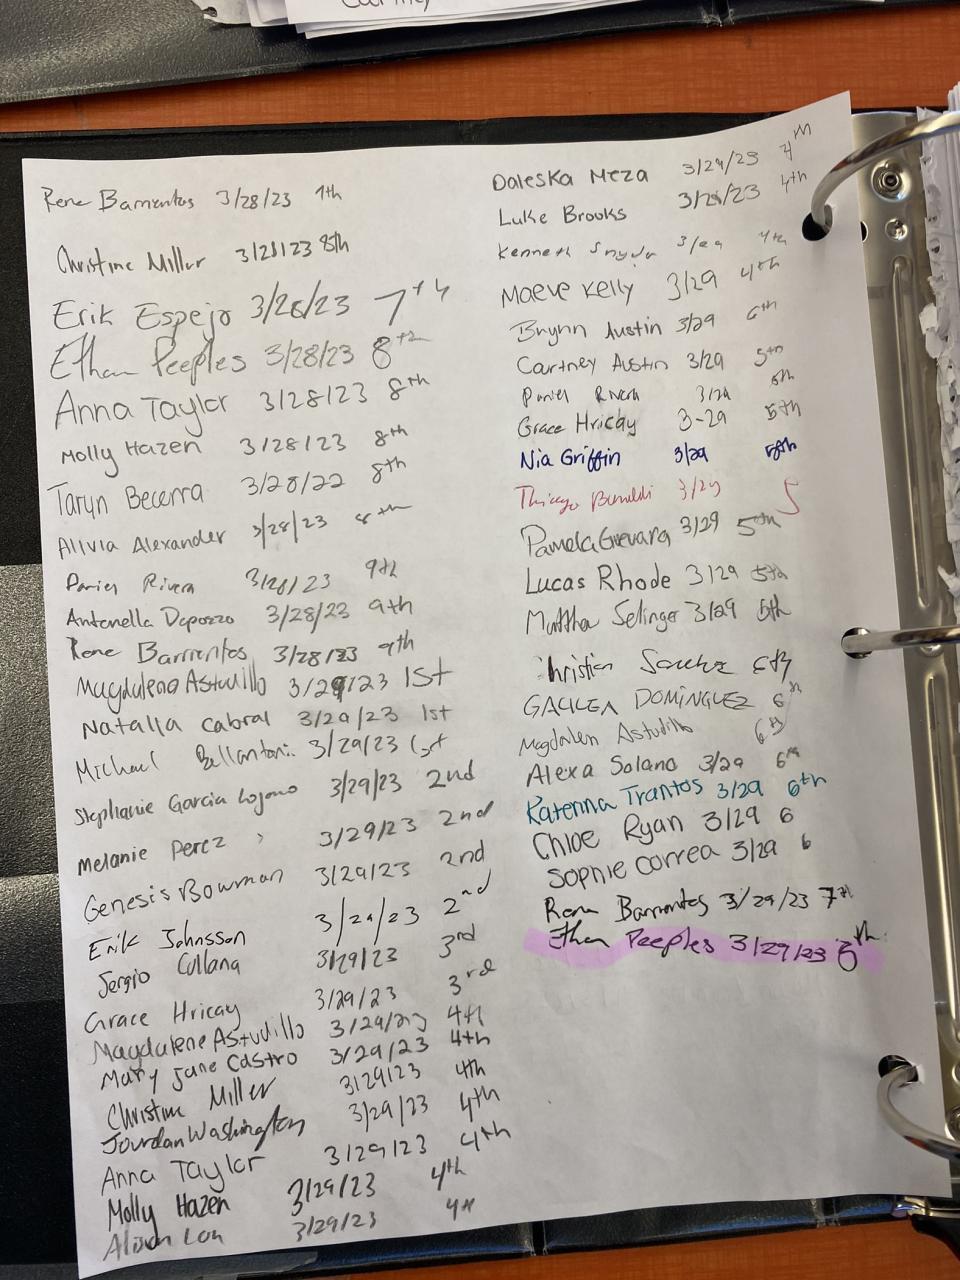 Rene Barrientos 3/28/23 7th
Christine Miller 3/28/23 8th
Erik Espejo 3/28/23 7th
Ethan Peeples 3/28/23 8th
Anna Taylor 3/28/23 8th
Molly Hazen 3/28/23 8th
Taryn Becerra 3/28/22 8th
Alivia Alexander 3/28/23 8th
Rivera 3/28/23 9th
Antonella Dapozzo 3/28/23 9th
Rene Barrientos 3/28/23 9th
Magdalena Astudillo 3/29/23 1st
Natalia Cabral 3/29/23 1st
Michael Bellantoni 3/29/23 1st
Stephanie Garcia Lozano 3/29/23 2nd
Melanie Perez 3/29/23 2nd
Genesis Bowman 3/29/23 2nd
Erik Johnsson 3/29/23 2nd
Sergio Collana 3/29/23 3rd
Grace Hricay 3/29/23 3rd
Magdalene Astudillo 3/29/23 4th
Mary Jane Castro 3/29/23 4th
Christine Miller 3/29/23 4th
Jourdan Washington 3/29/23 4th
Anna Taylor 3/29/23 4th
Molly Hazen 3/29/23 4th
3/29/23 4th
Daleska Meza 3/29/23 4th
Luke Brooks 3/29/23 4th
Kenneth Snyder 3/29 4th
Maeve Kelly 3/29 4th
Brynn Austin 3/29 6th
Courtney Austin 3/29 5th
Rivera 3/29 5th
Grace Hricay 3-29 5th
Nia Griffin 3/29 5th
Thiago 3/29 5
Pamela Guevara 3/29 5th
Lucas Rhode 3/29 5th
Selinger 3/29 5th
Christian Sanchez 6th
GALILEA DOMINGUEZ 6th
Magdalen Astudillo 6th
Alexa Solano 3/29 6th
Katerina Trantos 3/29 6th
Chloe Ryan 3/29 6
Sophie Correa 3/29 6
Rene Barrientos 3/29/23 7th
Ethan Peeples 3/29/23 8th